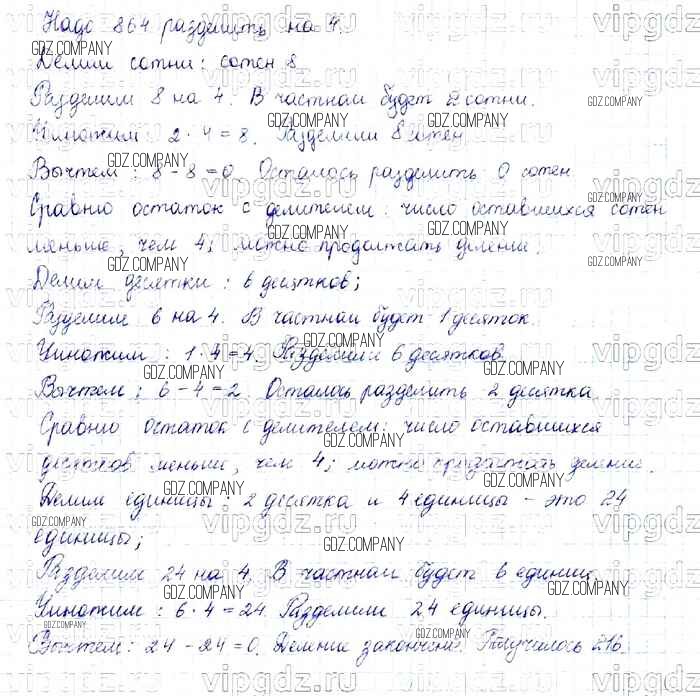 Надо 864 разделить на 4.
Делим сотни: сотен 8
Разделим 8 на 4. В частном будет 2 сотни.
Умножим: 2 · 4 = 8. Разделили 8 сотен
Вычтем: 8 - 8 = 0. Осталось разделить 0 сотен
Сравню остаток с делителем: число оставшихся сотен
меньше, чем 4; можно продолжать деление.
Делим десятки: 6 десятков;
Разделим 6 на 4. В частном будет 1 десяток.
Умножим: 1 · 4 = 4. Разделили 6 десятков
Вычтем: 6 - 4 = 2. Осталось разделить 2 десятка
Сравню остаток с делителем: число оставшихся
десятков меньше, чем 4; можно продолжать деление.
Делим единицы: 2 десятка и 4 единицы - это 24
единицы;
Разделим 24 на 4. В частном будет 6 единиц.
Умножим: 6 · 4 = 24. Разделили 24 единицы.
Вычтем: 24 - 24 = 0. Деление закончено. Получилось 216.